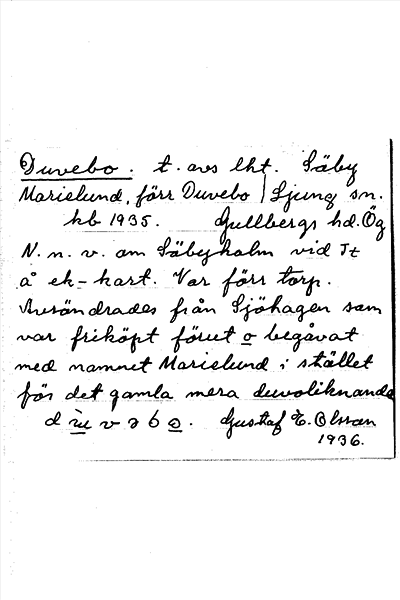 Duvebo. t. avs lht. Säby
Marielund, förr Duvebo / Ljung sn.
kb 1935. Gullbergs hd. Ög
N. n. v. om Säbyholm vid It
å ek-kart. Var förr torp.
Avsöndrades från Sjöhagen som
var friköpt förut o begåvat
med namnet Marielund i stället
för det gamla mera duvoliknande
Gustaf E. Olsson
1936.